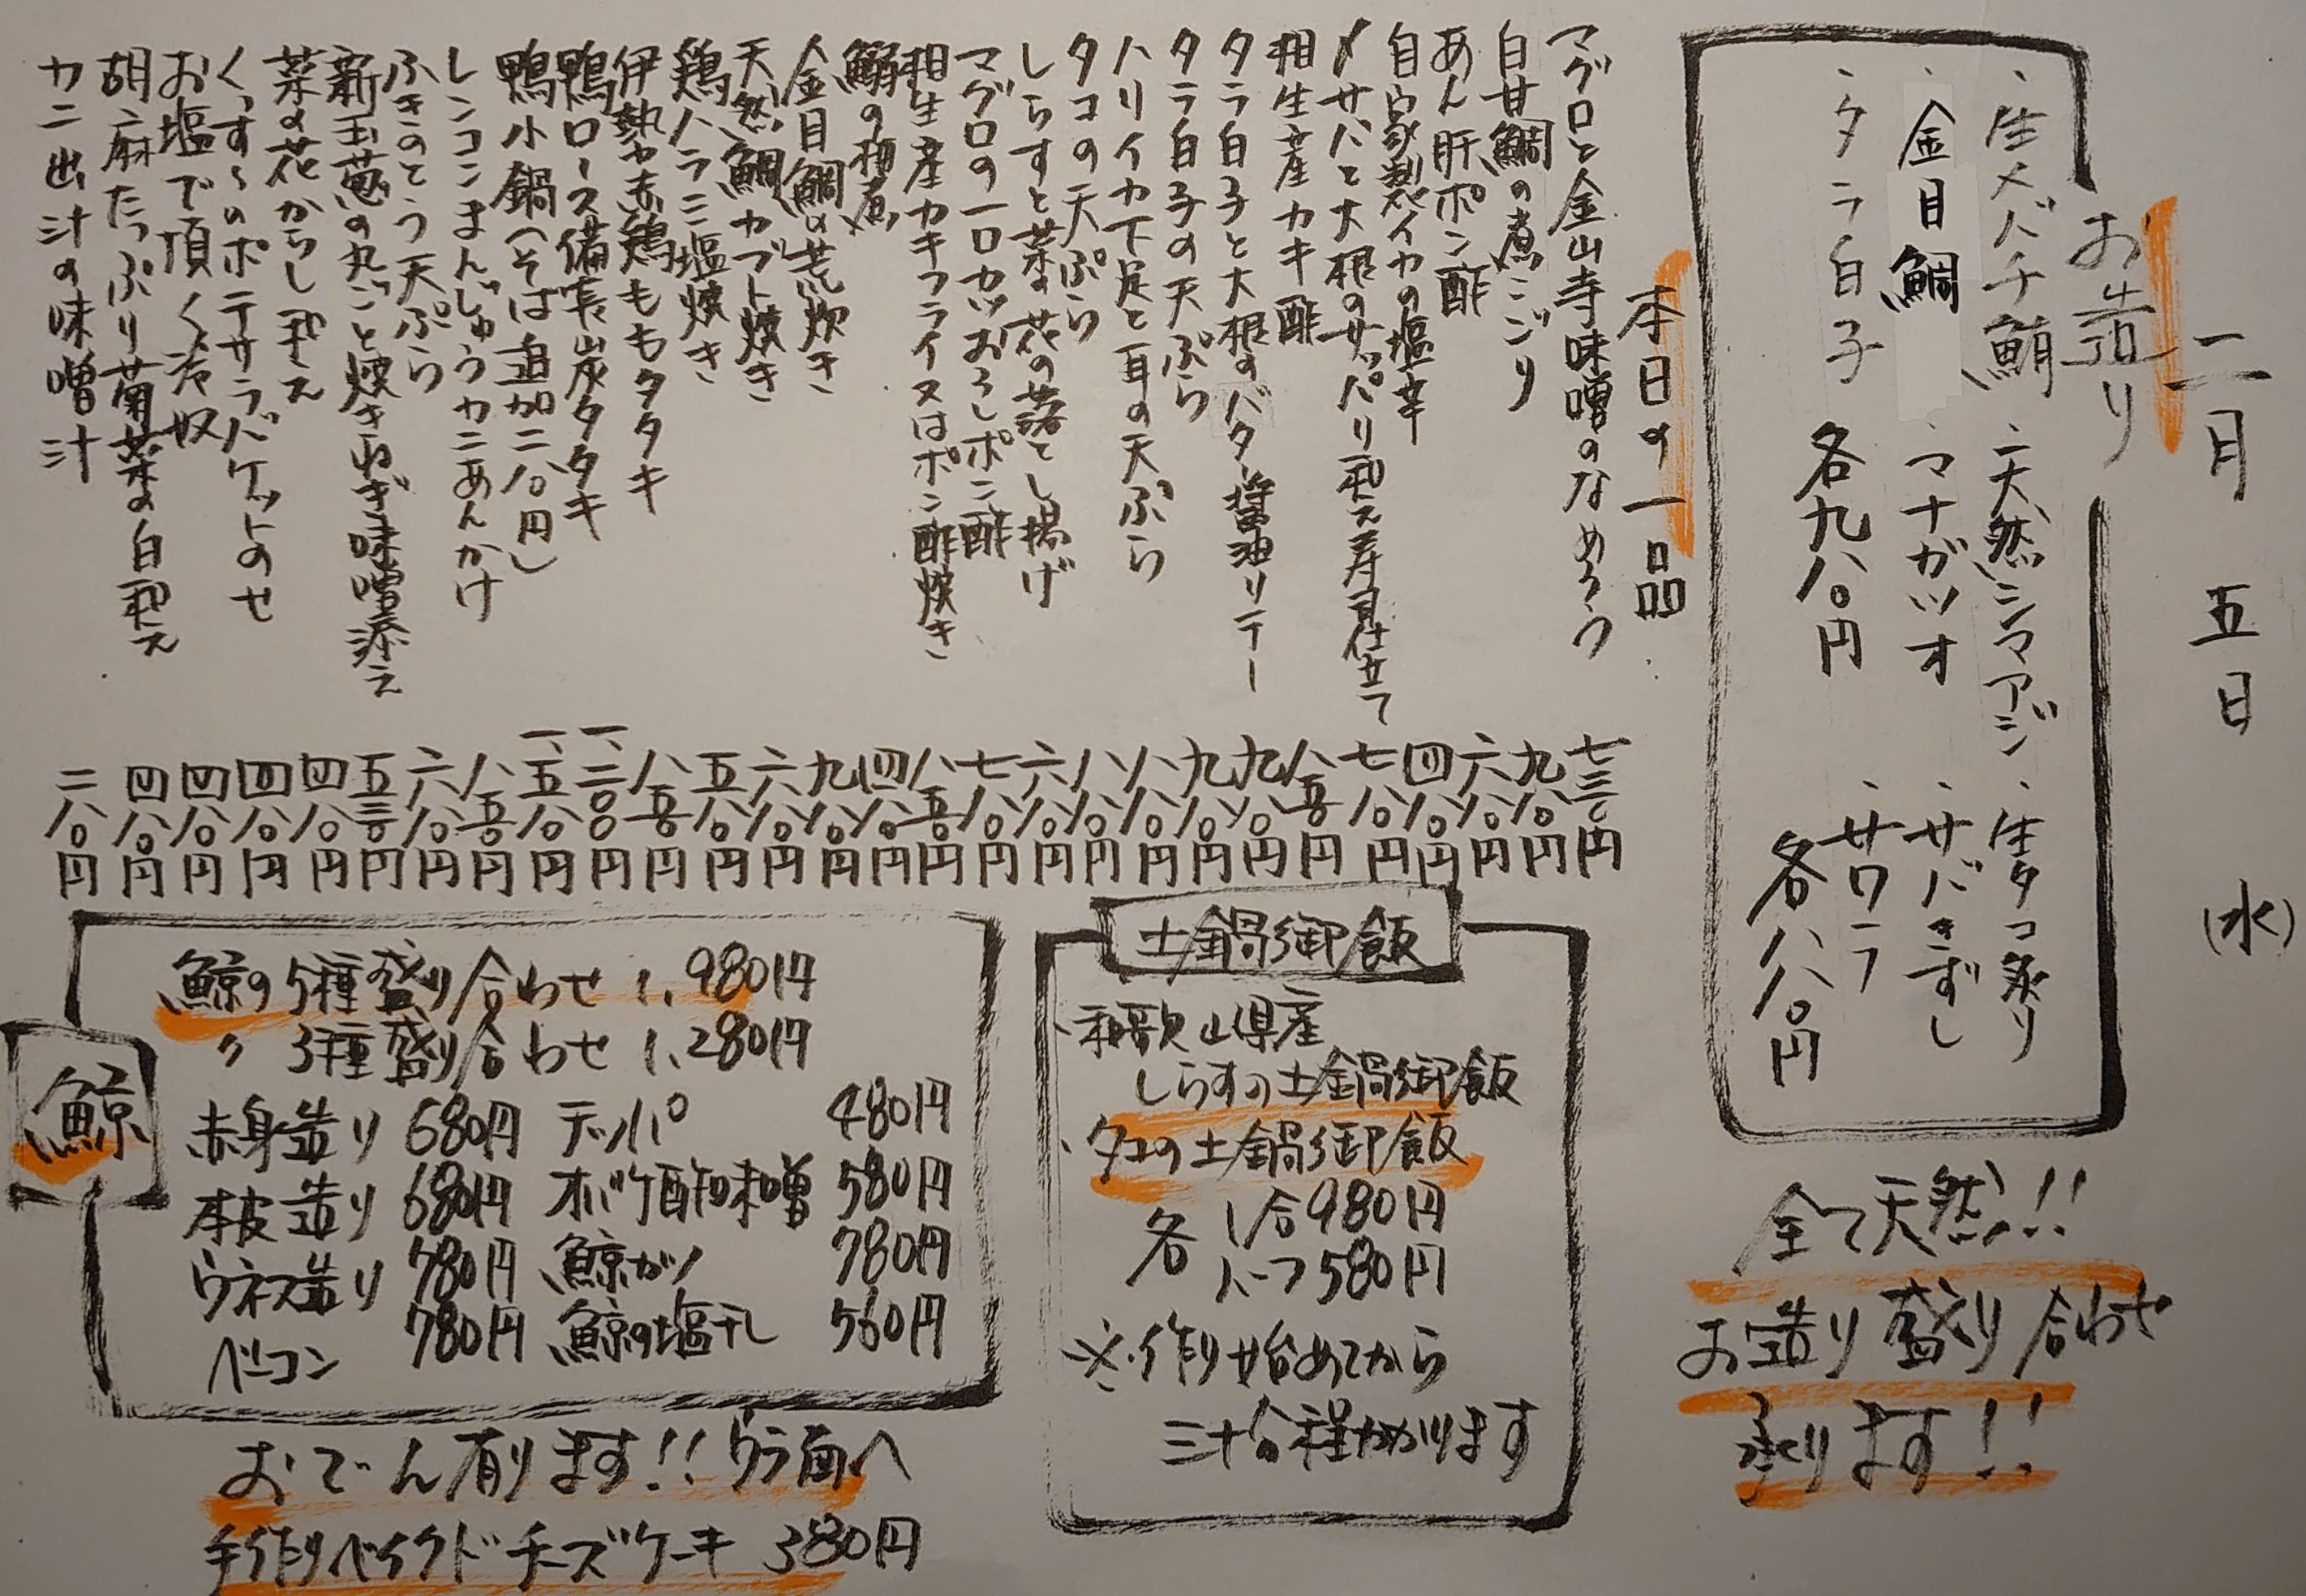 二月 五日 (水)
お造り
・生メバチ鮪 ・天然シマアジ ・生タコ炙り
・金目鯛 ・マナガツオ ・サバきずし
・タラ白子 ・サワラ
各九八〇円 各八八〇円
全て天然!!
お造り盛り合わせ
承ります!!
本日の一品
マグロと金山寺味噌のなめろう 七三〇円
白甘鯛の煮こごり 九八〇円
あん肝ポン酢 六八〇円
自家製イカの塩辛 四八〇円
〆サバと大根のサッパリ和え寿司仕立て 七八〇円
相生産カキ酢 八五〇円
タラ白子と大根のバター醤油リテー 九八〇円
タラ白子の天ぷら 九八〇円
ハリイカ下足と耳の天ぷら 八八〇円
タコの天ぷら 八八〇円
しらすと菜の花の落とし揚げ 六八〇円
マグロの一口カツおろしポン酢 七八〇円
相生産カキフライ又はポン酢焼き 八五〇円
鰯の梅煮 四八〇円
金目鯛の荒炊き 九八〇円
天然鯛カブト焼き 六八〇円
鶏ハラミ塩焼き 五八〇円
伊勢赤鶏ももタタキ 八五〇円
鴨ロース備長炭タタキ 一、二〇〇円
鴨小鍋(そば追加二八〇円) 一、五八〇円
レンコンまんじゅうカニあんかけ 八五〇円
ふきのとう天ぷら 六八〇円
新玉葱の丸ごと焼きねぎ味噌添え 五三〇円
菜の花からし和え 四八〇円
くんすーのポテサラバケットのせ 四八〇円
お塩で頂く冷奴 四八〇円
胡麻たっぷり菊菜の白和え 四八〇円
カニ出汁の味噌汁 二八〇円
土鍋御飯
・和歌山県産
しらすの土鍋御飯
・タコの土鍋御飯
各 1合980円
ハーフ580円
※作り始めてから
三十分程かかります
鯨
鯨の5種盛り合わせ 1,980円
〃 3種盛り合わせ 1,280円
赤身造り 680円 テッパ 480円
本皮造り 680円 オバケ酢味噌 580円
ウネス造り 780円 鯨カツ 780円
ベーコン 780円 鯨の塩干し 560円
おでん有ります!!ウラ面へ
手作りベイクドチーズケーキ 380円